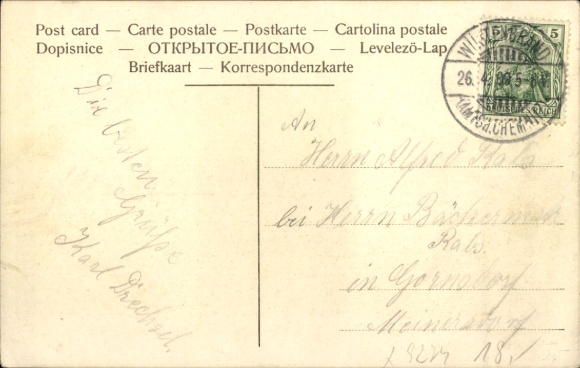 Post card — Carte postale — Postkarte — Cartolina postale
Dopisnice — ОТКРЫТОЕ-ПИСЬМО — Levelező-Lap
Briefkaart — Korrespondenzkarte
5 5
26. 4. 08 5-6
Die besten
Grüße
Karl Drechsel.
An
Herrn Alfred Rals
bei Herrn Bäckermstr
Rals.
in Gornsdorf
Meinersdorf
18.